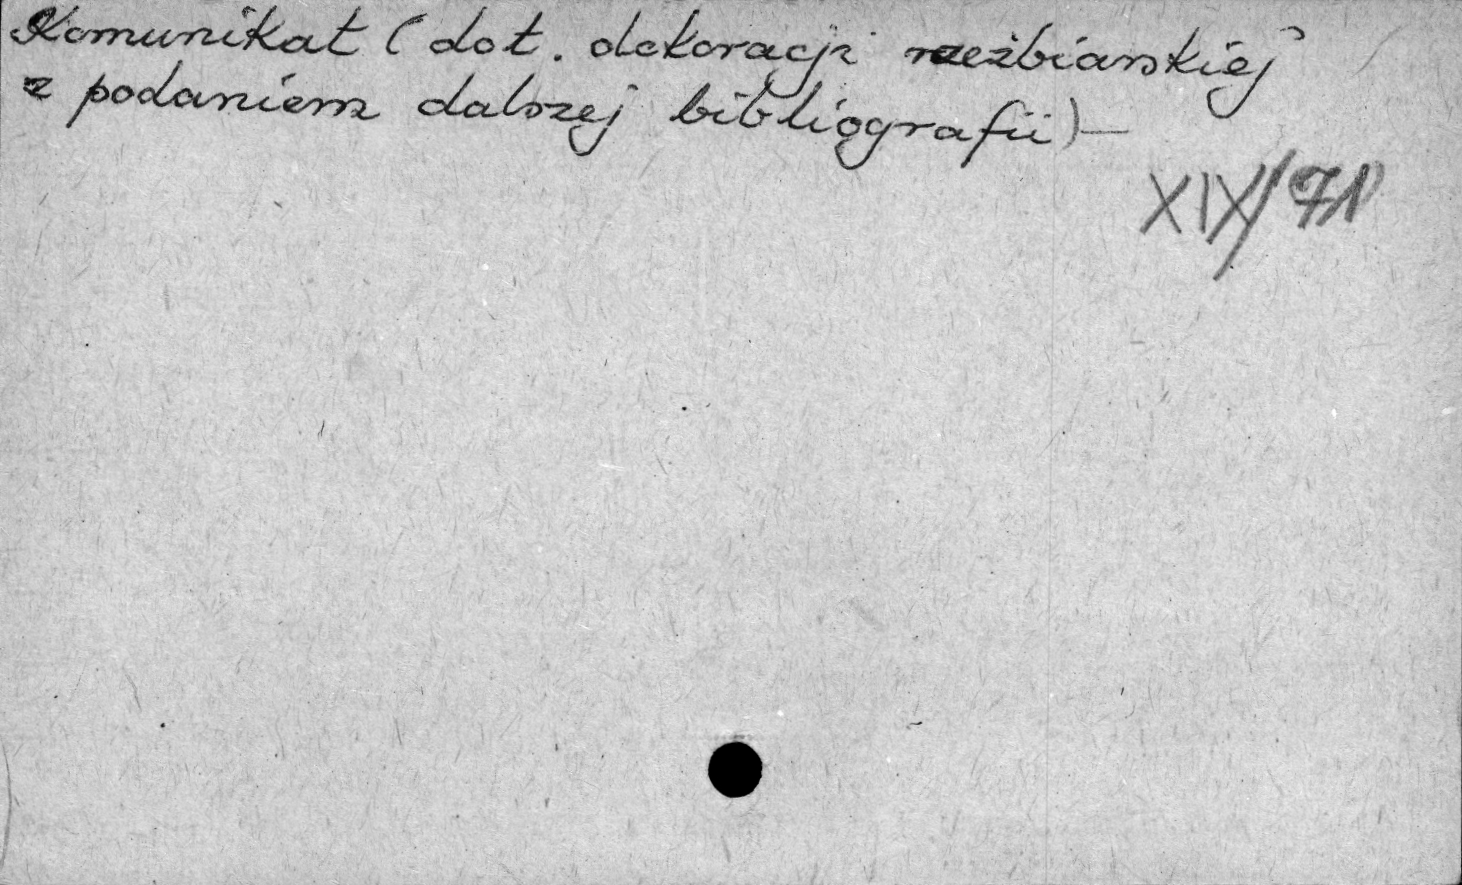 Komunikat (dot. dekoracji rzeźbiarskiej
z podaniem dalszej bibliografii) —
XIX/71